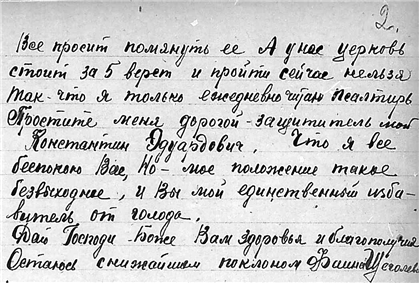 2.
Все просит помянуть ее А у нас церковь
стоит за 5 верст и пройти сейчас нельзя
так-что я только ежедневно читаю Псалтирь
Простите меня дорогой-защититель мой
Константин Эдуардович, Что я все
беспокою Вас, Но-мое положение такое
безвыходное, и Вы мой единственный изба-
витель от голода.
Дай Господи Боже Вам здоровья и благополучия
Остаюсь снижайшим поклоном Фаина Щеголева